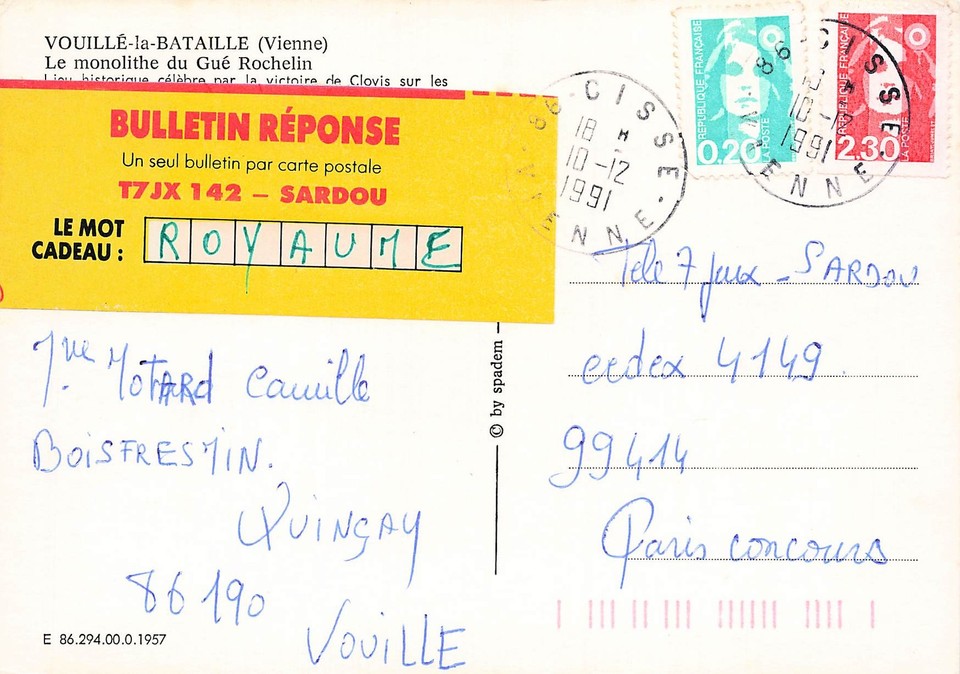 VOUILLÉ-la-BATAILLE (Vienne)
Le monolithe du Gué Rochelin
Lieu historique célèbre par la victoire de Clovis sur les
BULLETIN RÉPONSE
Un seul bulletin par carte postale
T7JX 142 – SARDOU
LE MOT CADEAU : ROYAUME
Mme MOTARD Camille
BOISFRESMIN.
QUINÇAY
86190
VOUILLE
E 86.294.00.0.1957
© by spadem
REPUBLIQUE FRANÇAISE
0,20
LA POSTE
REPUBLIQUE FRANÇAISE
2.30
LA POSTE
86 CISSE
18 H
10-12
1991
VIENNE
86 CISSE
18 H
10-12
1991
VIENNE
Télé 7 Jeux - SARDOU
cedex 4149
99414
Paris concours